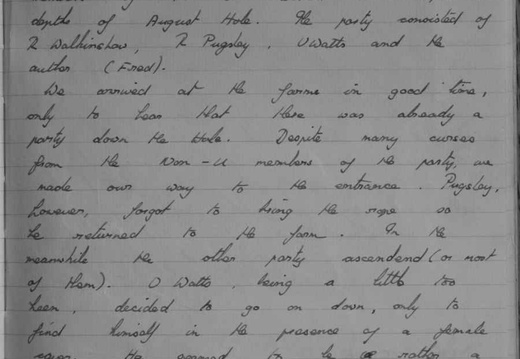 depths of August Hole. The party consisted of
R Walkinshaw, R Pugsley, O Watts and the
author (Fred).
We arrived at the farm in good time,
only to hear that there was already a
party down the Hole. Despite many curses
from the Non-U members of the party, we
made our way to the entrance. Pugsley,
however, forgot to bring the rope so
he returned to the farm. In the
meanwhile the other party ascended (or most
of them). O Watts, being a little too
keen, decided to go on down, only to
find himself in the presence of a female
caver. He seemed to be rather a